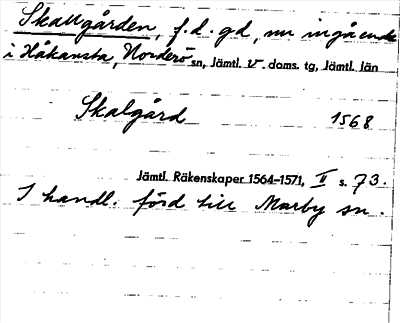 Skallgården, f.d. gd, nu ingående
i Håkansta, Norderö sn, Jämtl. v. doms. tg, Jämtl. län
Skalgård 1568
Jämtl. Räkenskaper 1564-1571, II s. 73.
I handl. förd till Marby sn.